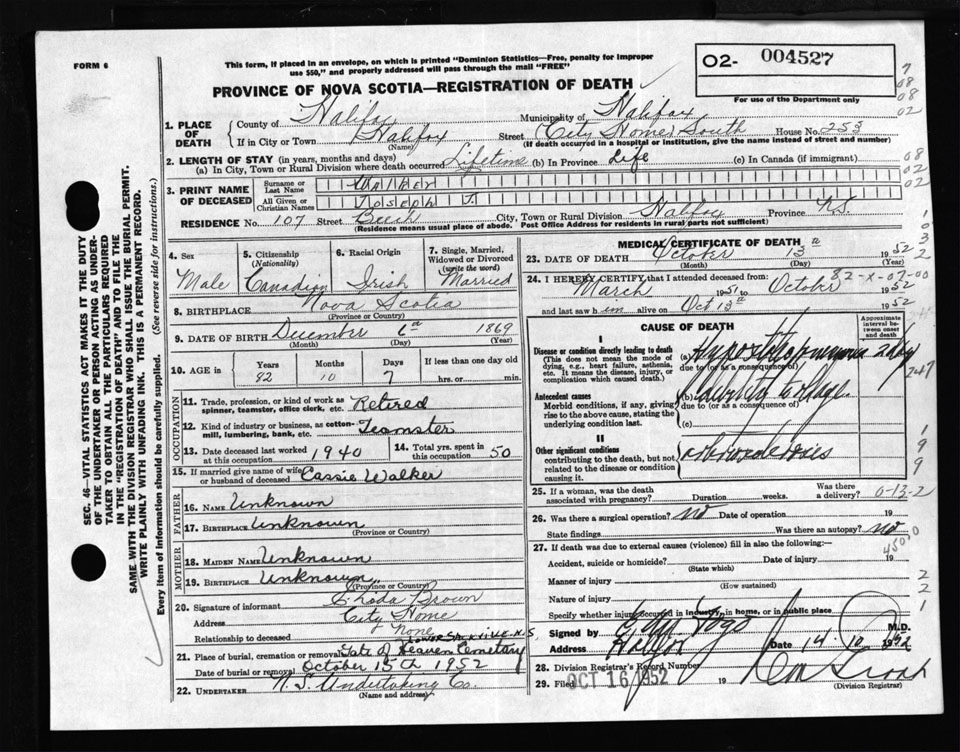 FORM 6
This form, if placed in an envelope, on which is printed "Dominion Statistics—Free, penalty for improper
use $50," and properly addressed will pass through the mail "FREE"
O2- 004527
For use of the Department only
PROVINCE OF NOVA SCOTIA—REGISTRATION OF DEATH
1. PLACE OF DEATH
County of Halifax Municipality of Halifax
If in City or Town Halifax Street (City Home) South House No. 253
(Name) (If death occurred in a hospital or institution, give the name instead of street and number)
2. LENGTH OF STAY (in years, months and days)
(a) In City, Town or Rural Division where death occurred Lifetime (b) In Province Life (c) In Canada (if immigrant)
3. PRINT NAME OF DECEASED
Surname or Last Name WALKER
All Given or Christian Names JOSEPH J.
RESIDENCE No. 107 Street City, Town or Rural Division Halifax Province N.S.
(Residence means usual place of abode. Post Office Address for residents in rural parts not sufficient)
4. Sex Male
5. Citizenship (Nationality) Canadian
6. Racial Origin Irish
7. Single, Married, Widowed or Divorced (write the word) Married
8. BIRTHPLACE Nova Scotia
(Province or Country)
9. DATE OF BIRTH December 6th 1869
(Month) (Day) (Year)
10. AGE in Years 82 Months 10 Days 7 If less than one day old
hrs. or min.
OCCUPATION
11. Trade, profession, or kind of work as
spinner, teamster, office clerk, etc. Retired
12. Kind of industry or business, as cotton-
mill, lumbering, bank, etc. Teamster
13. Date deceased last worked at this occupation 1940
14. Total yrs. spent in this occupation 50
15. If married give name of wife
or husband of deceased Cassie Walker
FATHER
16. NAME Unknown
17. BIRTHPLACE Unknown
(Province or Country)
MOTHER
18. MAIDEN NAME Unknown
19. BIRTHPLACE Unknown
(Province or Country)
20. Signature of informant Rhoda Brown
Address City Home
Relationship to deceased None
LOWER SACKVILLE N.S.
21. Place of burial, cremation or removal Gate of Heaven Cemetery
Date of burial or removal October 15th 1952
22. UNDERTAKER N.S. Undertaking Co.
(Name and address)
MEDICAL CERTIFICATE OF DEATH
23. DATE OF DEATH October 13th 1952
(Month) (Day) (Year)
24. I HEREBY CERTIFY, that I attended deceased from:
82-X-07-00
March 1951 to October 1952
and last saw him alive on Oct 13th 1952
CAUSE OF DEATH
Approximate interval between onset and death
I
Disease or condition directly leading to death
(This does not mean the mode of
dying, e.g., heart failure, asthenia,
etc. It means the disease, injury, or
complication which caused death.)
(a) 2 day
due to (or as a consequence of)
247
Antecedent causes
Morbid conditions, if any, giving
rise to the above cause, stating the
underlying condition last.
(b)
due to (or as a consequence of)
(c)
II
Other significant conditions
contributing to the death, but not
related to the disease or condition
causing it.
25. If a woman, was the death
associated with pregnancy? Duration weeks. Was there a delivery? 0-13-2
26. Was there a surgical operation? no Date of operation 19
State findings Was there an autopsy? no
27. If death was due to external causes (violence) fill in also the following:—
Accident, suicide or homicide? Date of injury 19
(State which)
450.0
Manner of injury
(How sustained)
Nature of injury
Specify whether injury occurred in industry, in home, or in public place
Signed by M.D.
Address Halifax Date 14 10 1952
28. Division Registrar's Record Number
29. Filed OCT 16 1952 19
(Division Registrar)
SEC. 46—VITAL STATISTICS ACT MAKES IT THE DUTY
OF THE UNDERTAKER OR PERSON ACTING AS UNDER-
TAKER TO OBTAIN ALL THE PARTICULARS REQUIRED
IN THE "REGISTRATION OF DEATH" AND TO FILE THE
SAME WITH THE DIVISION REGISTRAR WHO SHALL ISSUE THE BURIAL PERMIT.
WRITE PLAINLY WITH UNFADING INK. THIS IS A PERMANENT RECORD.
Every item of information should be carefully supplied. (See reverse side for instructions.)